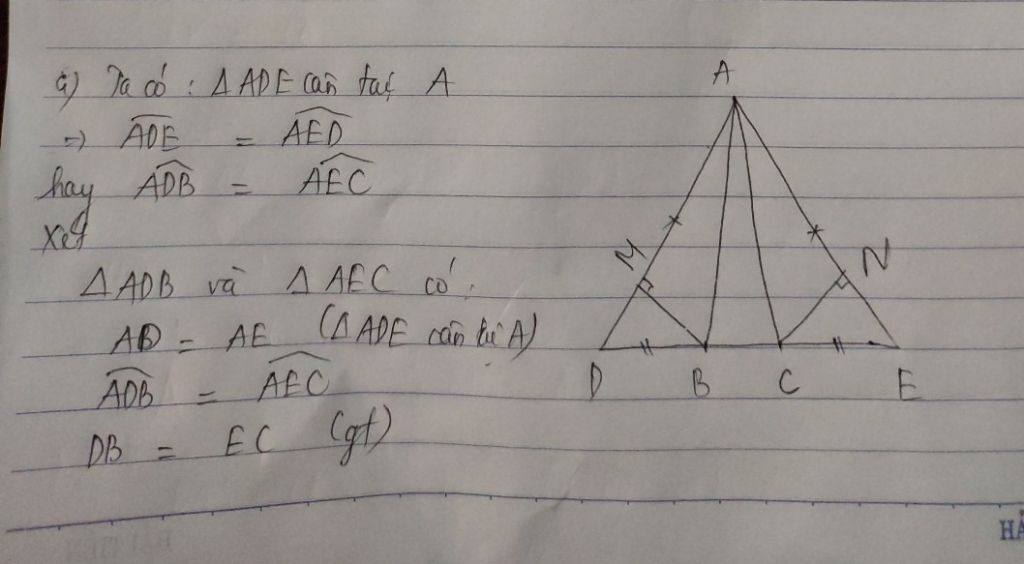 a) Ta có : Δ ADE cân tại A
=> ADE = AED
hay ADB = AEC
Xét
Δ ADB và Δ AEC có :
AD = AE (Δ ADE cân tại A)
ADB = AEC
DB = EC (gt)
A
M
N
D B C E
HẢ